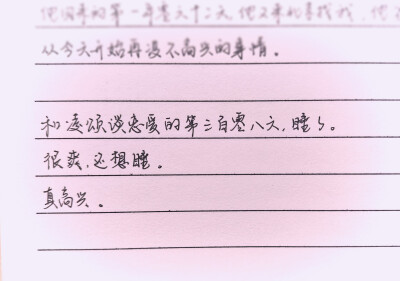 从今天开始再没不高兴的事情。
和凌颂谈恋爱的第三百零八天,睡了。
很爽,还想睡。
真高兴。